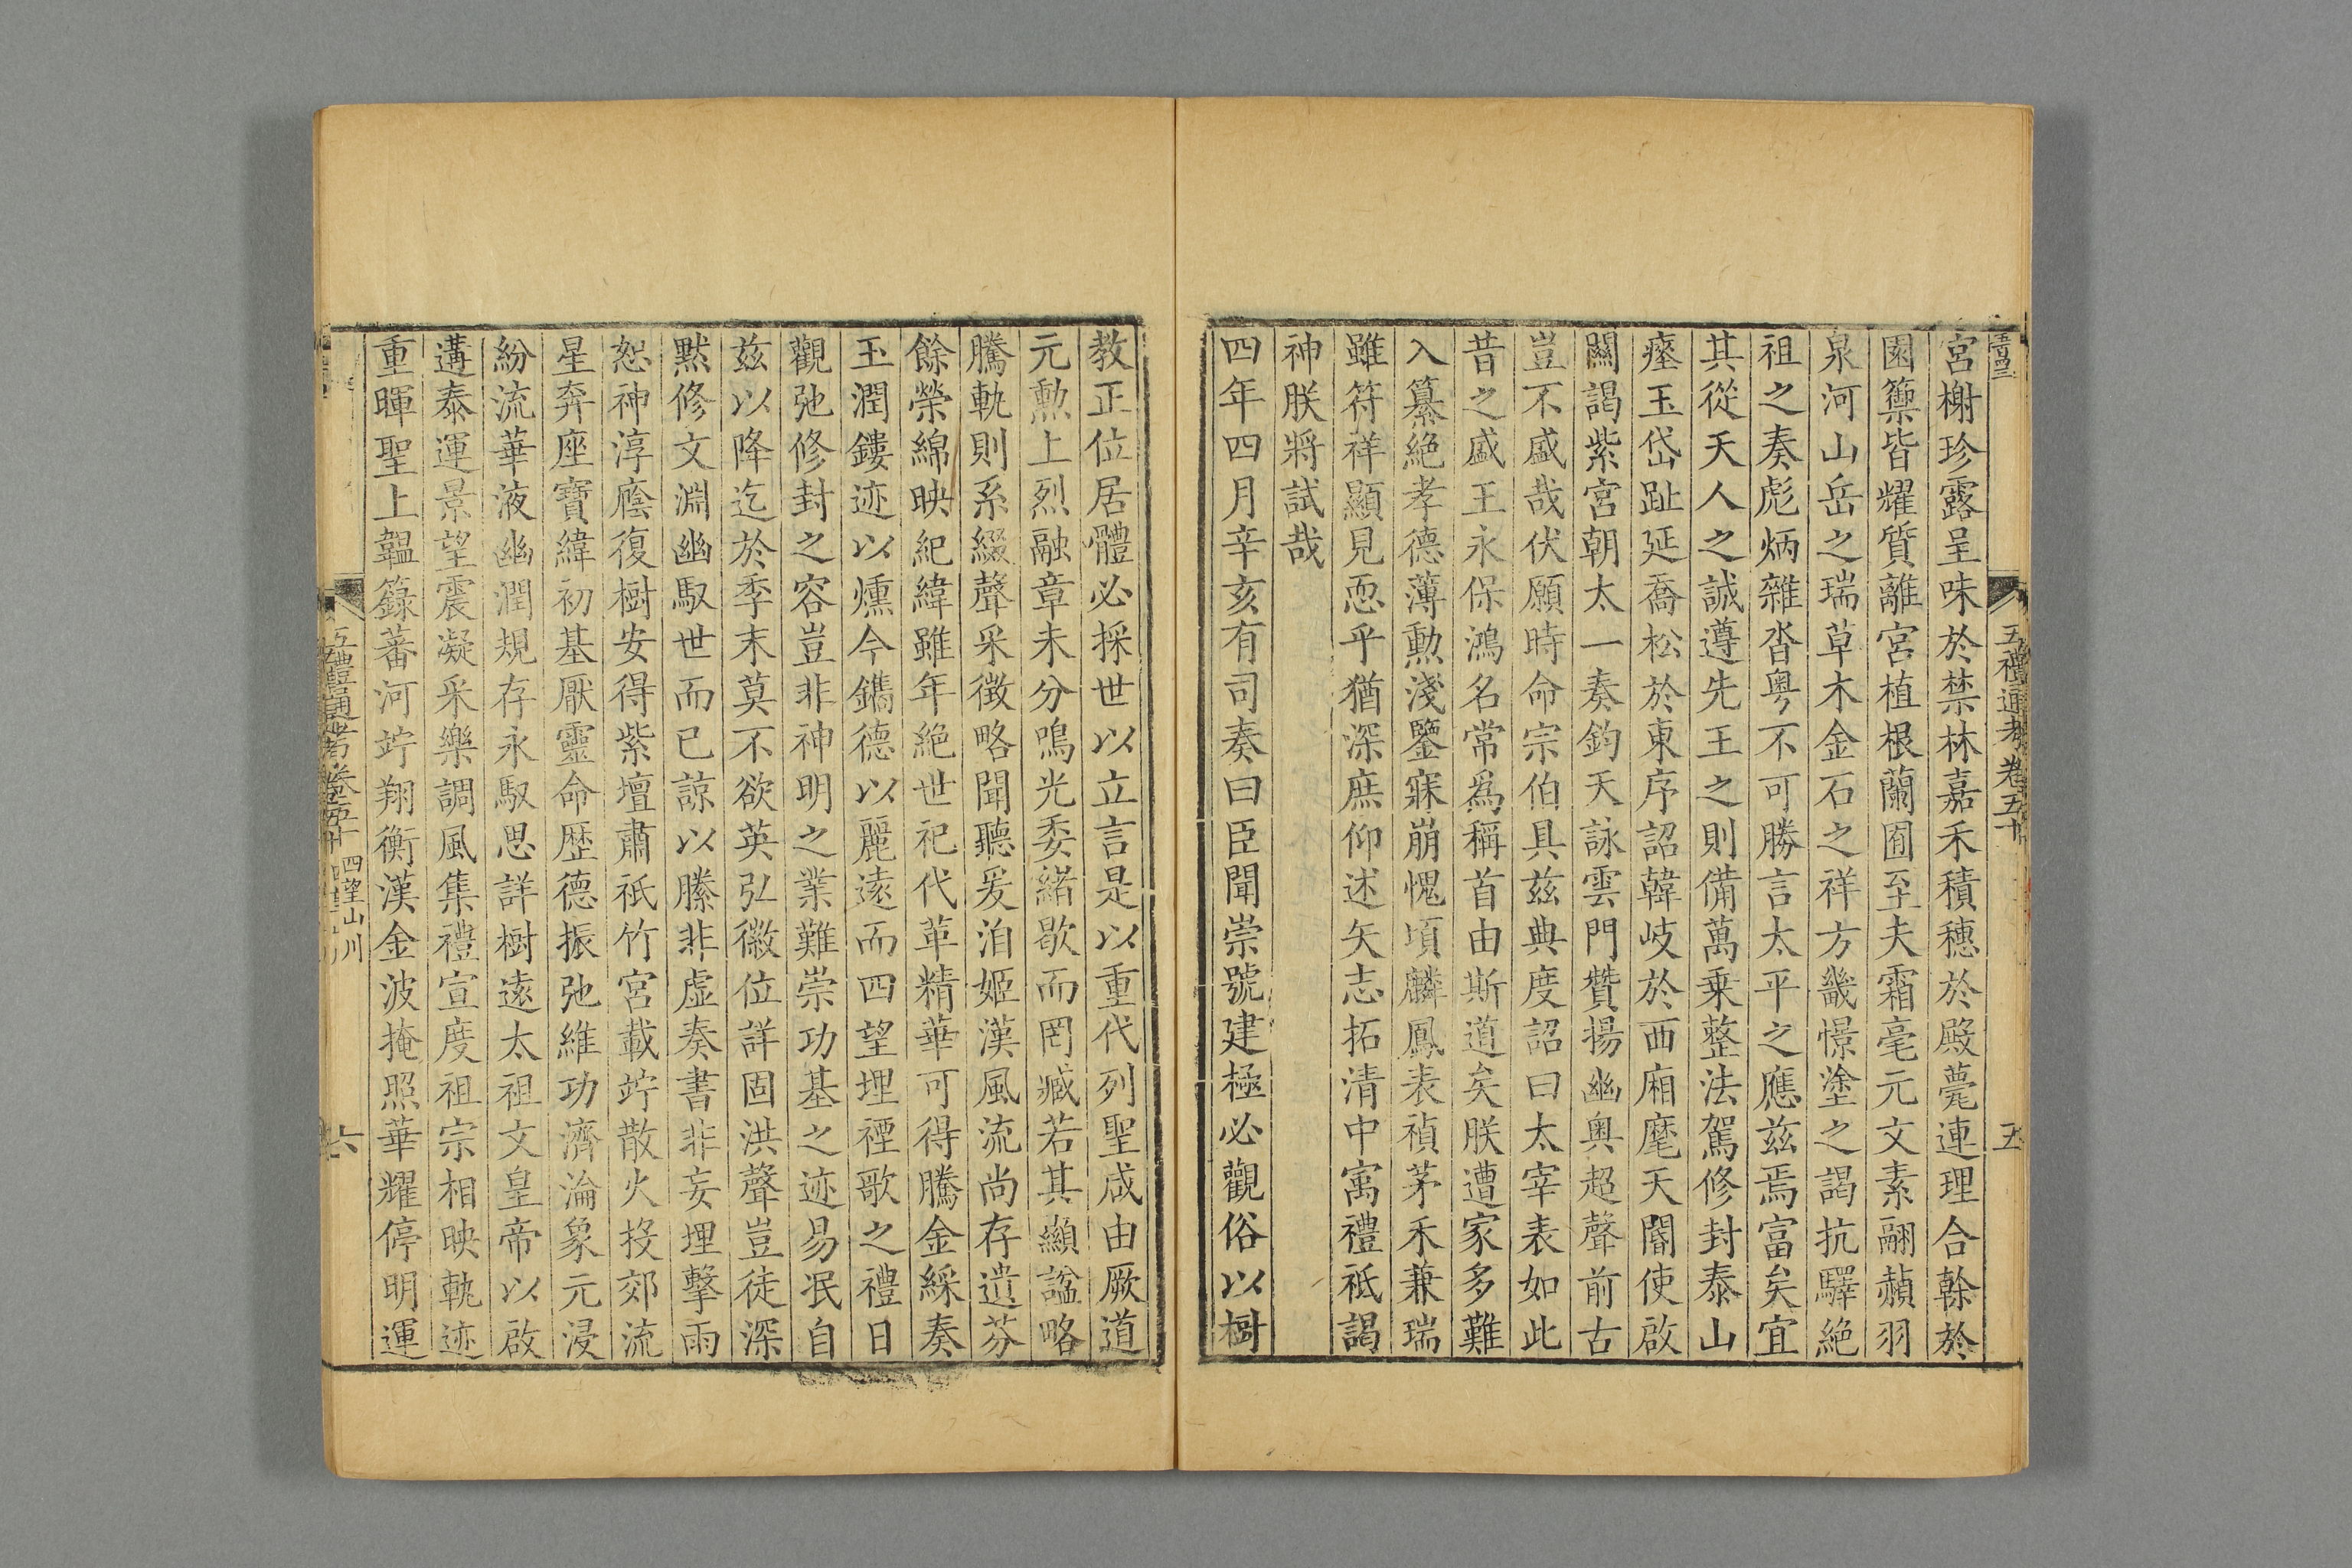 五禮通考卷五十
五
宮榭珍露呈味於禁林嘉禾積穗於殿甍連理合榦於
園籞皆耀質離宮植根蘭囿至夫霜毫元文素翮赬羽
泉河山岳之瑞草木金石之祥方畿憬塗之謁抗驛絕
祖之奏彪炳雜沓粵不可勝言太平之應茲焉富矣宜
其從天人之誠遵先王之則備萬乗整法駕修封泰山
瘞玉岱趾延喬松於東序詔韓岐於西廂麾天閽使啟
關謁紫宮朝太一奏鈞天詠雲門贊揚幽奧超聲前古
豈不盛哉伏願時命宗伯具茲典度詔曰太宰表如此
昔之盛王永保鴻名常爲稱首由斯道矣朕遭家多難
入纂絕孝德薄勲淺鑒寐崩愧頃麟鳳表禎茅禾兼瑞
雖符祥顯見恧乎猶深庶仰述矢志拓清中寓禮祗謁
神朕將試哉
四年四月辛亥有司奏曰臣聞崇號建極必觀俗以樹
教正位居體必採世以立言是以重代列聖咸由厥道
元勲上烈融章未分鳴光委緒歇而罔臧若其顯諡略
騰軌則系綴聲采徵略聞聽爰洎姬漢風流尚存遺芬
餘榮綿映紀緯雖年絕世祀代革精華可得騰金綵奏
玉潤鏤迹以燻今鐫德以麗遠而四望埋禋歌之禮日
觀弛修封之容豈非神明之業難崇功基之迹易泯自
茲以降迄於季末莫不欲英弘徽位詳固洪聲豈徒深
黙修文淵幽馭世而已諒以縢非虛奏書非妄埋擊雨
恕神淳廕復樹安得紫壇肅祇竹宮載竚散火投郊流
星奔座寶緯初基厭靈命歴德振弛維功濟淪象元浸
紛流華液幽潤規存永馭思詳樹遠太祖文皇帝以啟
遘泰運景望震凝采樂調風集禮宣度祖宗相映軌迹
重暉聖上韞籙蕃河竚翔衡漢金波掩照華耀停明運
五禮通考卷五十
四望山川
六